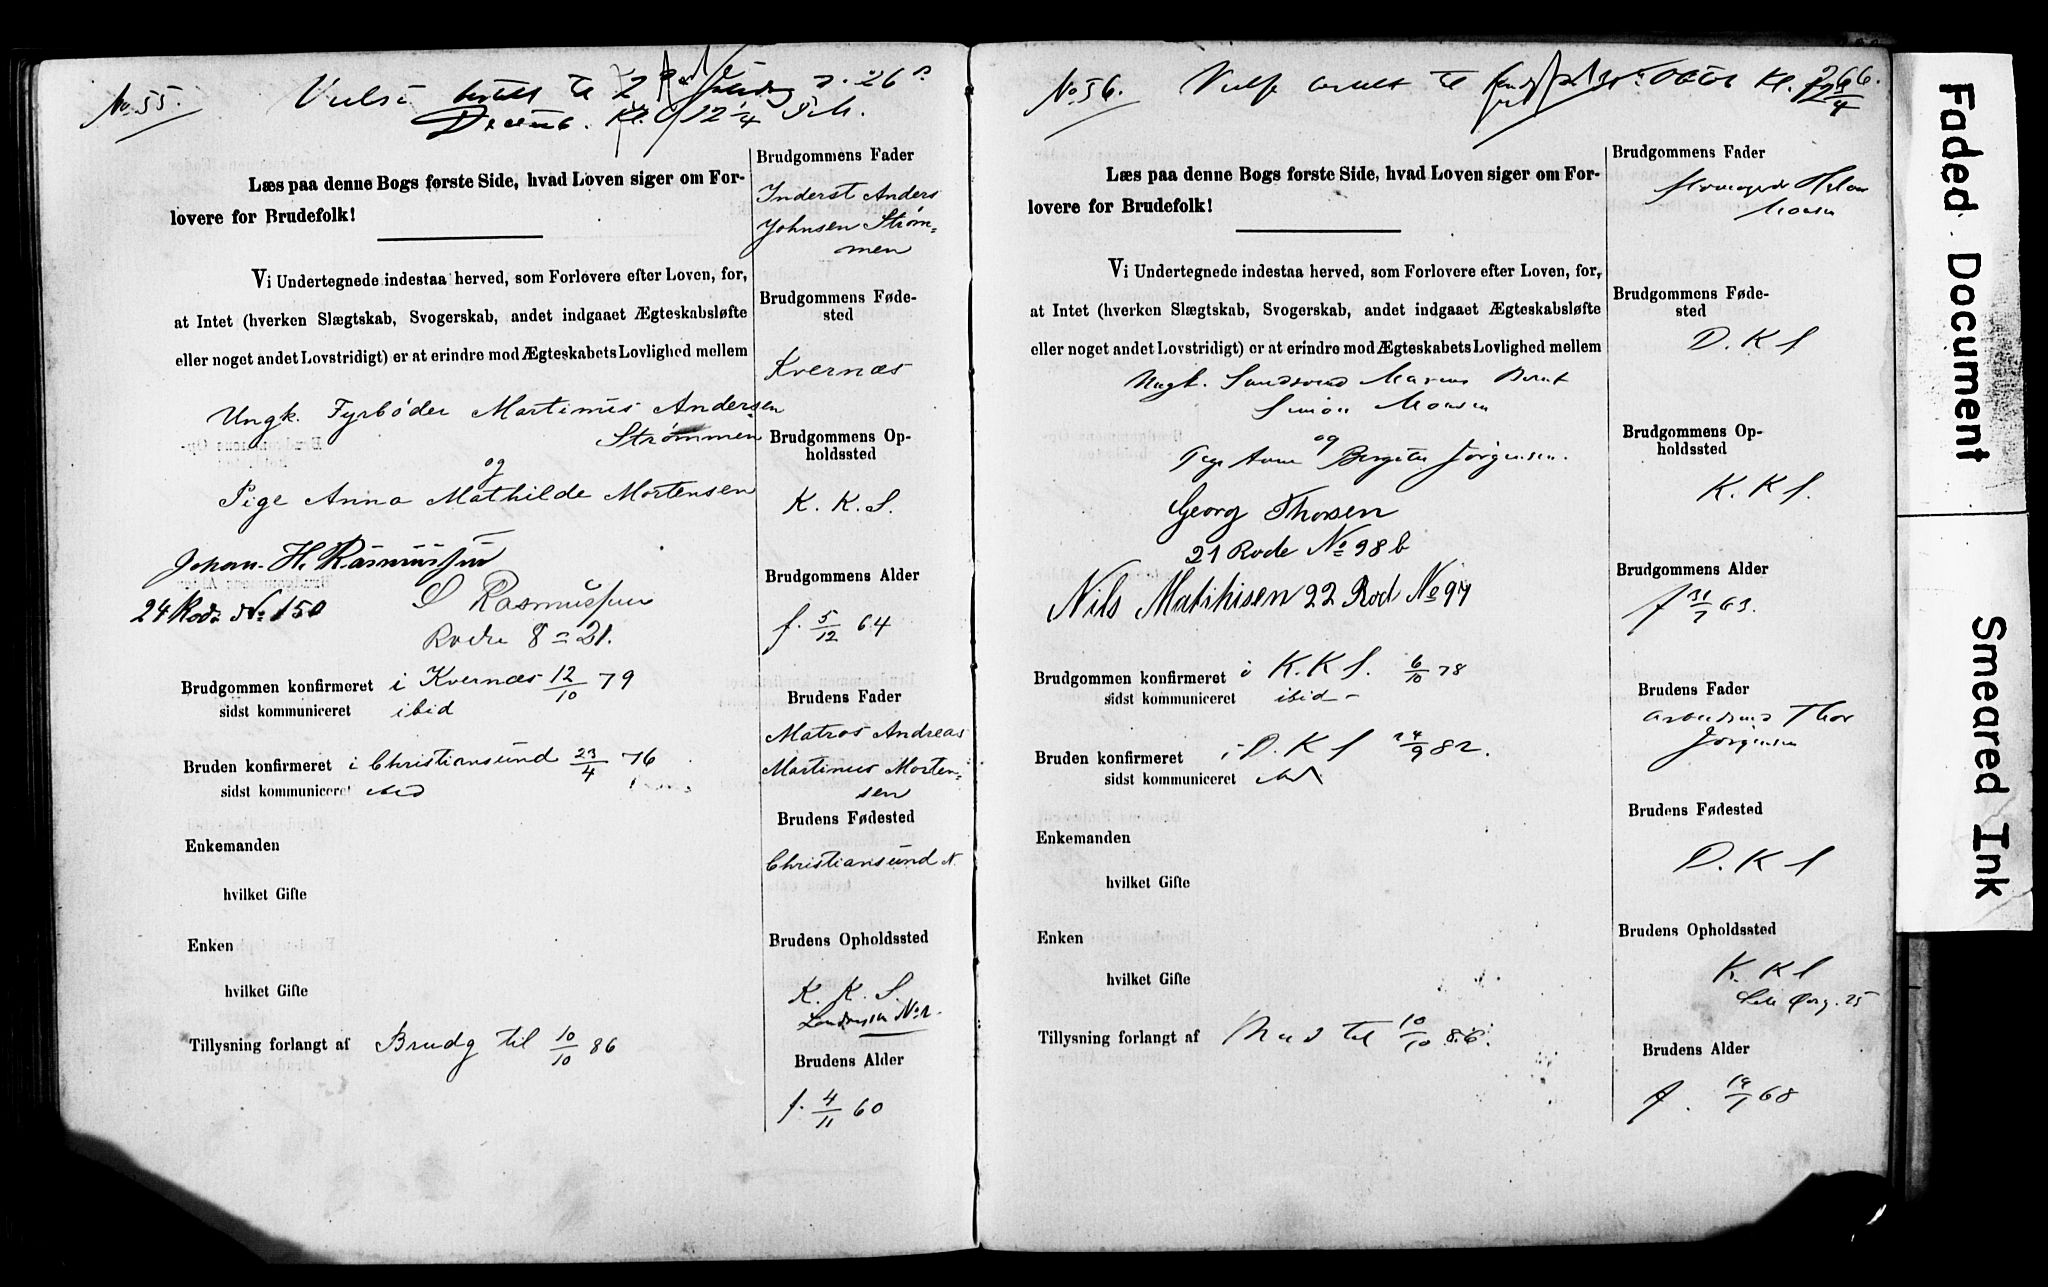 No 55.
Vielse bestilt til 2 Juledag d. 26
Decemb. Kl. 12 1/4
Læs paa denne Bogs første Side, hvad Loven siger om For-
lovere for Brudefolk!
Vi Undertegnede indestaa herved, som Forlovere efter Loven, for,
at Intet (hverken Slægtskab, Svogerskab, andet indgaaet Ægteskabsløfte
eller noget andet Lovstridigt) er at erindre mod Ægteskabets Lovlighed mellem
Ungk. Fyrbøder Martinus Andersen
Strømmen
og
Pige Anna Mathilde Mortensen
Johan H. Rasmussen
24 Rode No 150
S Rasmussen
Rode 8 = 21.
Brudgommen konfirmeret i Kvernæs 12/10 79
sidst kommuniceret ibid
Bruden konfirmeret i Christiansund 23/4 76
sidst kommuniceret ibid
Enkemanden
hvilket Gifte
Enken
hvilket Gifte
Tillysning forlangt af Brudg til 10/10 86
Brudgommens Fader
Inderst Anders
Johnsen Strøm-
men
Brudgommens Føde-
sted
Kvernæs
Brudgommens Op-
holdssted
K. K. S.
Brudgommens Alder
f. 5/12 64
Brudens Fader
Matros Andreas
Martinus Morten-
sen
Brudens Fødested
Christiansund N.
Brudens Opholdssted
K. K. S.
No 2.
Brudens Alder
f. 4/11 60
266.
No 56.
Vielse bestilt til Kl. 12 3/4
Læs paa denne Bogs første Side, hvad Loven siger om For-
lovere for Brudefolk!
Vi Undertegnede indestaa herved, som Forlovere efter Loven, for,
at Intet (hverken Slægtskab, Svogerskab, andet indgaaet Ægteskabsløfte
eller noget andet Lovstridigt) er at erindre mod Ægteskabets Lovlighed mellem
Ungk. Marius Bernt
Simon Monsen
og
Pige Anne Bergitte Jørgensen.
Georg Thorsen
21 Rode No 98 b
Nils Mathisen 22 Rod No 97
Brudgommen konfirmeret i K. K S. 6/10 78
sidst kommuniceret ibid -
Bruden konfirmeret i D. K S 24/9 82.
sidst kommuniceret ibid
Enkemanden
hvilket Gifte
Enken
hvilket Gifte
Tillysning forlangt af Brud til 10/10 86.
Brudgommens Fader
Monsen
Brudgommens Føde-
sted
D. K S
Brudgommens Op-
holdssted
K. K S.
Brudgommens Alder
f 31/7 63.
Brudens Fader
Arbeidsmd Thor
Jørgensen
Brudens Fødested
D. K S
Brudens Opholdssted
K. K S
25
Brudens Alder
f. 19/1 68
Faded Document
Smeared Ink